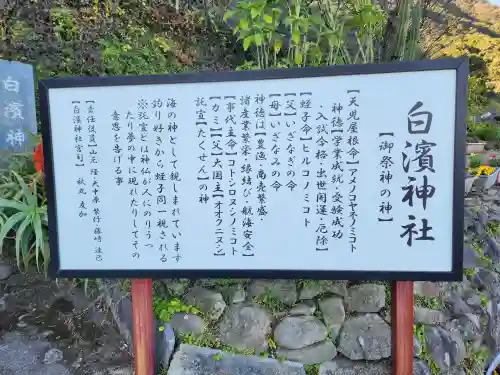 白濱神社
【御祭神の神】
【天児屋根命】アメノコヤネノミコト
神徳【学業成就・受験成功
・入試合格・出世開運・厄除】
【蛭子命】ヒルコノミコト
(父)いざなぎの命
(母)いざなみの命
神徳は【豊漁・商売繁盛・
諸産業繁栄・縁結び・航海安全】
【事代主命】コトシロヌシノミコト
【カミ】【父】大国主【オオクニヌシ】
託宣【たくせん】の神
海の神として親しまれています
釣り好きから蛭子同一視される
※託宣とは神仏が人にのりうつっ
たり夢の中に現れたりしてその
意思を告げる事
【責任役員】
【白濱神社宮司】
白濱神